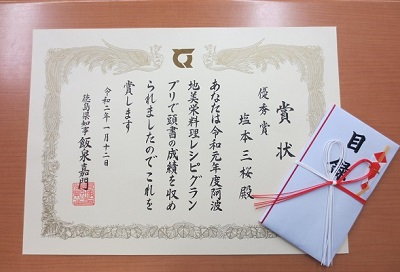 賞状
優秀賞
塩本三桜殿
あなたは令和元年度阿波
地美栄料理レシピグラン
プリで頭書の成績を収め
られましたのでこれを
賞します
令和二年一月十二日
徳島県知事 飯泉嘉門
目録